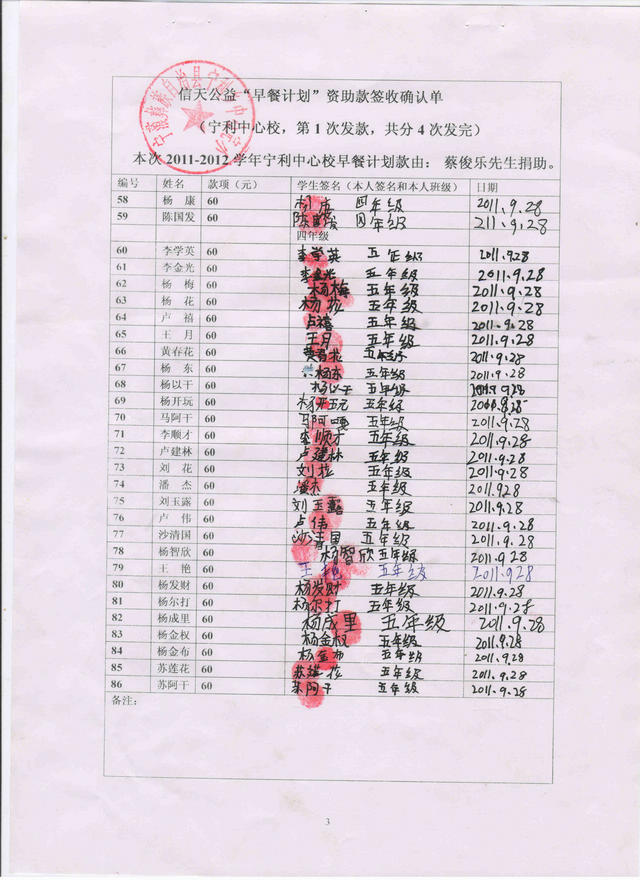 信天公益“早餐计划”资助款签收确认单
（宁利中心校，第1次发款，共分4次发完）
本次2011-2012学年宁利中心校早餐计划款由：蔡俊乐先生捐助。
编号 姓名 款项（元） 学生签名（本人签名和本人班级） 日期
58 杨 康 60 四年级 2011.9.28
59 陈国发 60 陈国发 四年级 211.9.28
四年级
60 李学英 60 李学英 五年级 2011.9.28
61 李金光 60 李金光 五年级 2011.9.28
62 杨 梅 60 杨梅 五年级 2011.9.28
63 杨 花 60 杨花 五年级 2011.9.28
64 卢 禧 60 卢禧 五年级 2011.9.28
65 王 月 60 王月 五年级 2011.9.28
66 黄春花 60 黄春花 五年级 2011.9.28
67 杨 东 60 杨东 五年级 2011.9.28
68 杨以干 60 杨以干 五年级 2011.9.28
69 杨开玩 60 杨开玩 五年级 9.28
70 马阿干 60 马阿嘎 五年级 2011.9.28
71 李顺才 60 李顺才 五年级 2011.9.28
72 卢建林 60 卢建林 五年级 2011.9.28
73 刘 花 60 刘花 五年级 2011.9.28
74 潘 杰 60 潘杰 五年级 2011.928
75 刘玉露 60 刘玉露 五年级 2011.9.28
76 卢 伟 60 卢伟 五年级 2011.9.28
77 沙清国 60 沙清国 五年级 2011.9.28
78 杨智欣 60 杨智欣 五年级 2011.9.28
79 王 艳 60 王艳 五年级 2011.928
80 杨发财 60 杨发财 五年级 2011.9.28
81 杨尔打 60 杨尔打 五年级 2011.9.28
82 杨成里 60 杨成里 五年级 2011.9.28
83 杨金权 60 杨金权 五年级 2011.9.28
84 杨金布 60 杨金布 五年级 2011.9.28
85 苏莲花 60 苏莲花 五年级 2011.9.28
86 苏阿干 60 苏阿干 五年级 2011.9.28
备注：
3